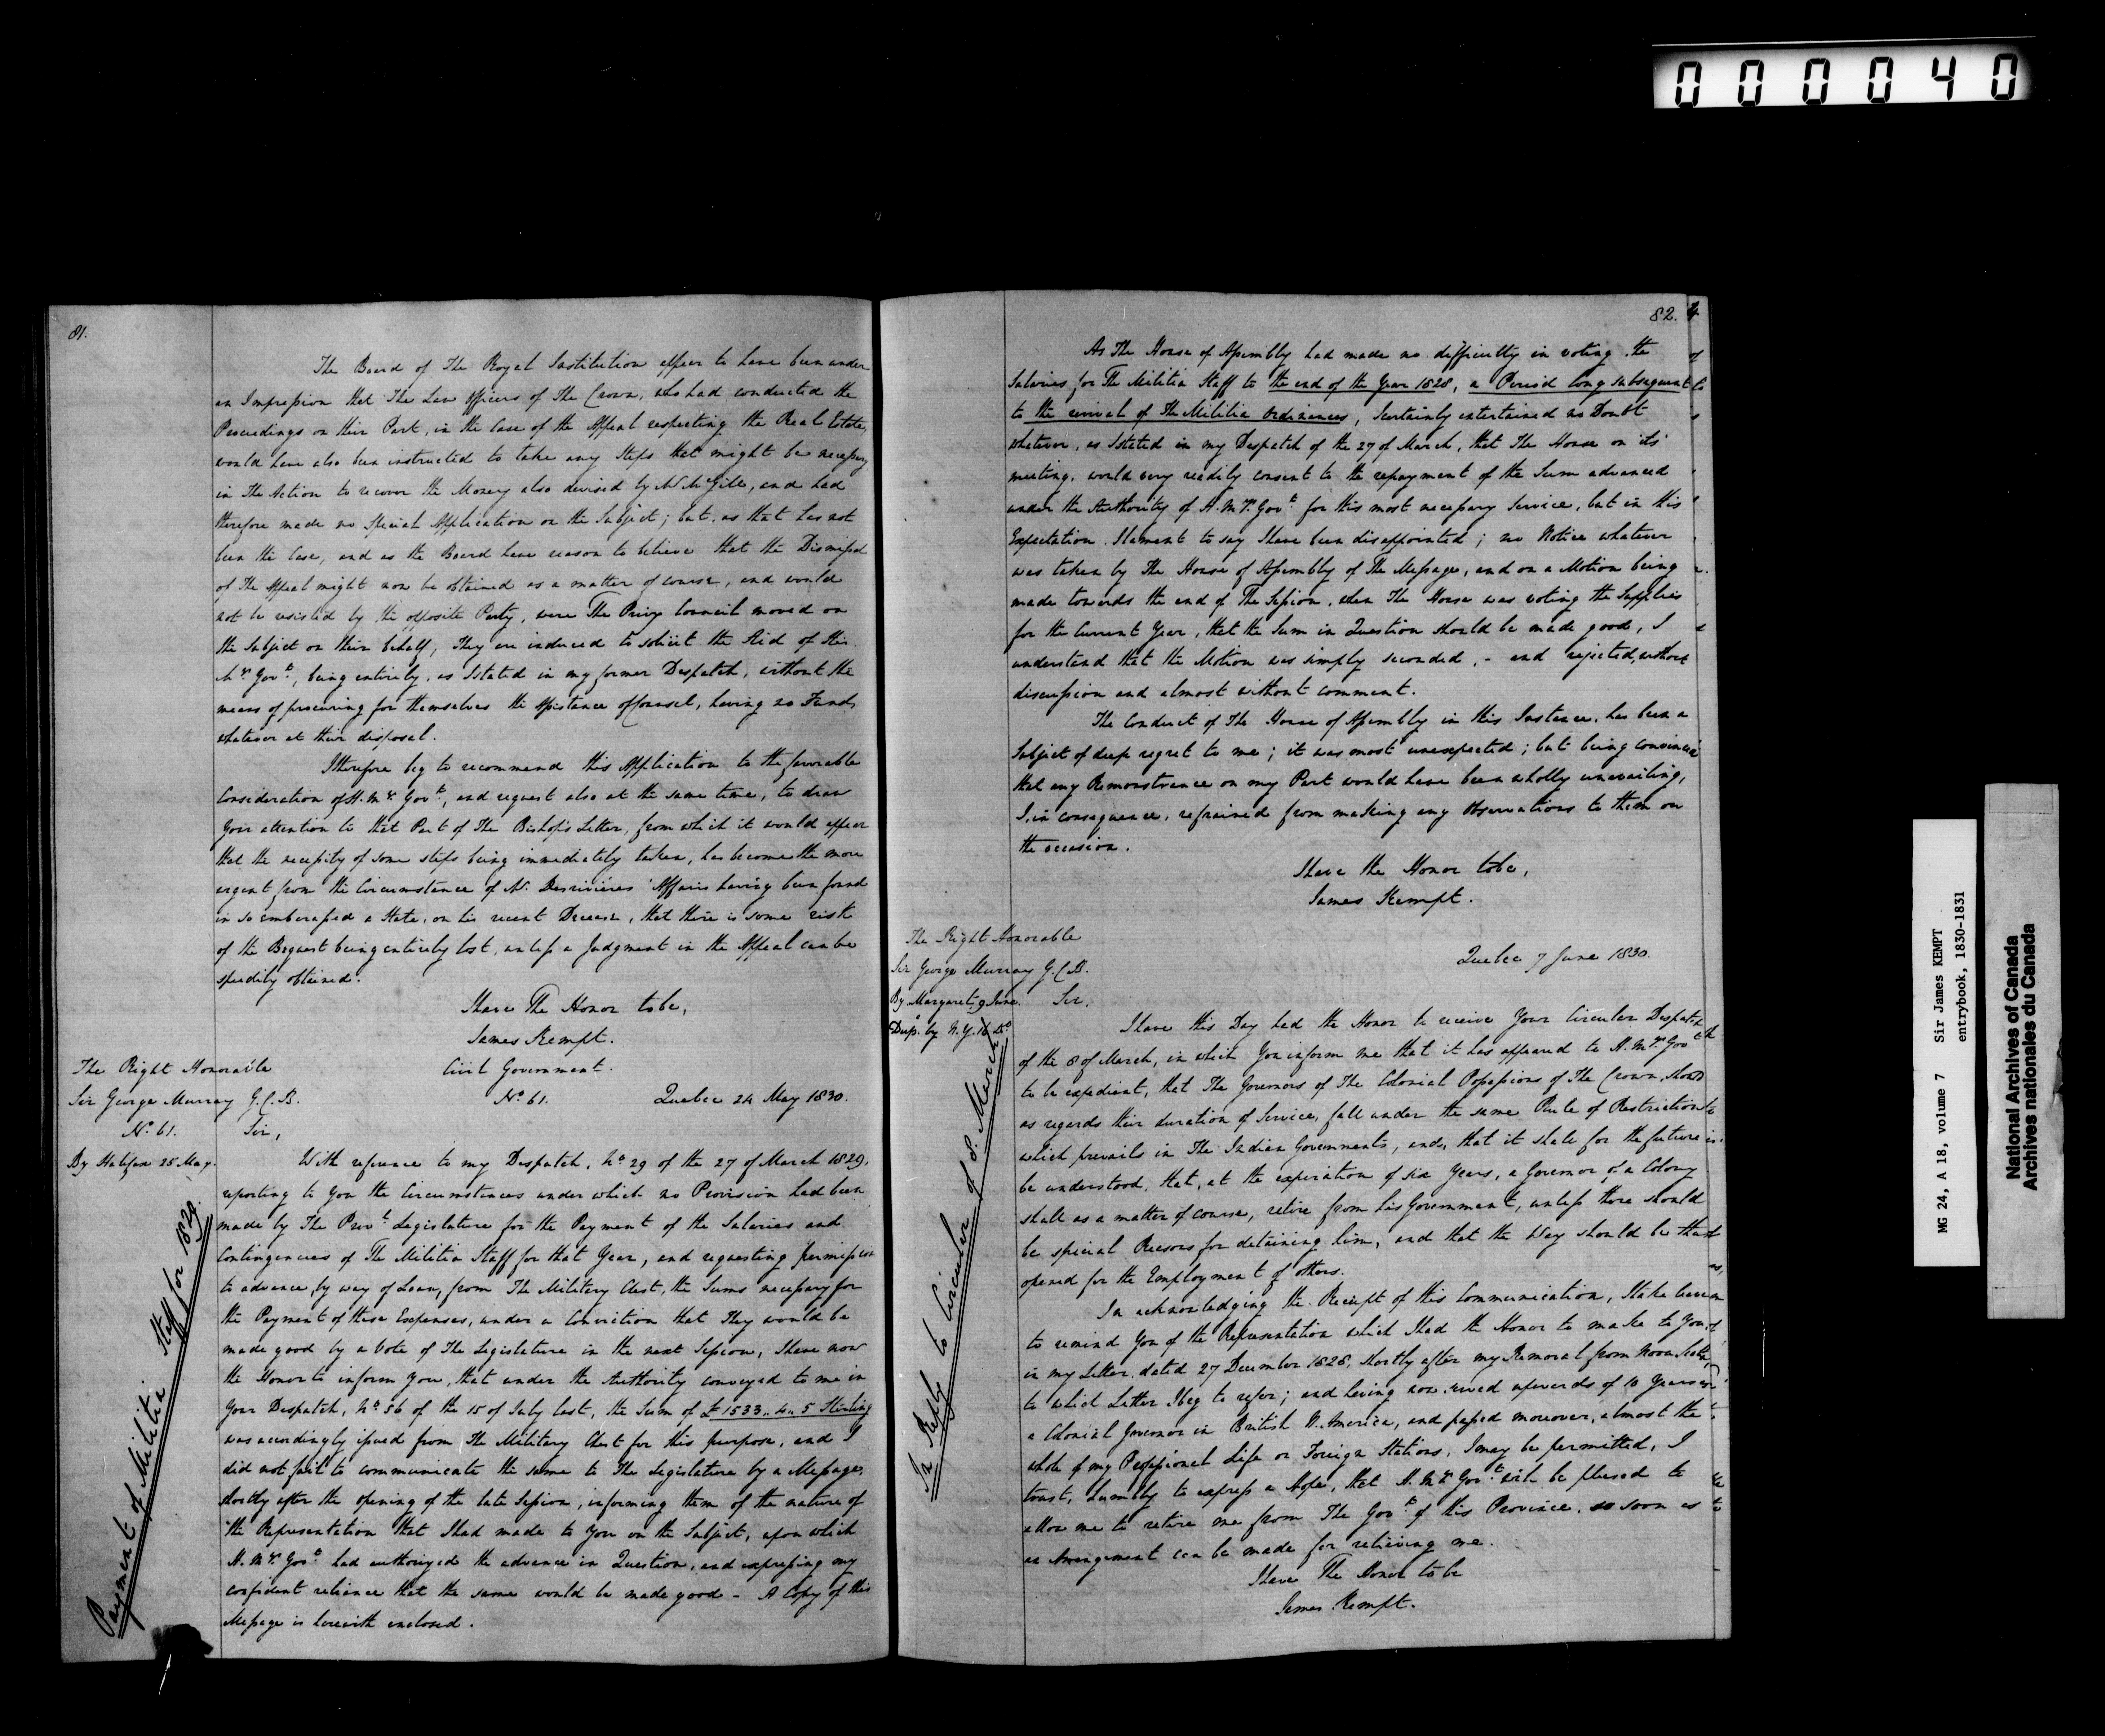 000040
81.
The Board of The Royal Institution appear to have been under
an Impression that The Law Officers of The Crown, who had conducted the
Proceedings on their Part, in the Case of the Appeal respecting the Real Estate,
would have also been instructed to take any Steps that might be necessary
in The Action to recover the Money also devised by Mr. McGill, and had
therefore made no special Application on the Subject; but, as that has not
been the Case, and as the Board have reason to believe that the Dismissal
of The Appeal might now be obtained as a matter of course, and would
not be resisted by the opposite Party, were The Privy Council moved on
the Subject on their behalf, They are induced to solicit the Aid of His
My's Govt, being entirely, as I stated in my former Despatch, without the
means of procuring for themselves the Assistance of Counsel, having no Funds
whatever at their disposal.
I therefore beg to recommend this Application to the favorable
Consideration of H.My's Govt, and request also at the same time, to draw
Your attention to that Part of The Bishop's Letter, from which it would appear
that the necessity of some steps being immediately taken, has become the more
urgent from the Circumstance of Mr. Desrivieres' Affairs having been found
in so embarassed a State, on his recent Decease, that there is some risk
of the Bequest being entirely lost, unless a Judgment in the Appeal can be
speedily obtained.
I have The Honor to be,
James Kempt.
The Right Honorable
Sir George Murray G.C.B.
Civil Government.
No 61.
Quebec 24 May 1830.
No. 61.
Sir,
By Halifax 25 May.
Payment of Militia Staff for 1829.
With reference to my Despatch, No 29 of the 27 of March 1829,
reporting to You the Circumstances under which no Provision had been
made by The Provl Legislature for the Payment of the Salaries and
Contingencies of The Militia Staff for that Year, and requesting permission
to advance, by way of Loan, from The Military Chest, the Sums necessary for
the Payment of these Expenses, under a Conviction that They would be
made good by a Vote of The Legislature in the next Session, I have now
the Honor to inform You, that under the Authority conveyed to me in
Your Despatch, No 56 of the 15 of July last, the Sum of £1533..4..5 Sterling
was accordingly issued from The Military Chest for this purpose, and I
did not fail to communicate the same to The Legislature by a Message,
shortly after the opening of the late Session, informing them of the nature of
the Representation that I had made to You on the Subject, upon which
H.My's Govt had authorized the advance in Question, and expressing my
confident reliance that the same would be made good - A Copy of this
Message is herewith enclosed.
82.
As The House of Assembly had made no difficulty in voting the
Salaries for The Militia Staff to the end of the Year 1828, a Period long subsequent
to the revival of The Militia Ordinances, I certainly entertained no Doubt
whatever, as I stated in my Despatch of the 27 of March, that The House on its
meeting, would very readily consent to the repayment of the Sum advanced
under the Authority of H.My's Govt for this most necessary Service, but in this
Expectation I lament to say I have been disappointed; no Notice whatever
was taken by The House of Assembly of The Message, and on a Motion being
made towards the end of The Session, when The House was voting the Supplies
for the Current Year, that the Sum in Question should be made good, I
understand that the Motion was simply seconded, - and rejected, without
discussion and almost without comment.
The Conduct of The House of Assembly in this Instance, has been a
Subject of deep regret to me; it was most unexpected; but being convinced
that any Remonstrance on my Part would have been wholly unavailing,
I, in consequence, refrained from making any Observations to them on
the occasion.
I have the Honor to be,
James Kempt.
The Right Honorable
Sir George Murray G.C.B.
Quebec 7 June 1830.
By Margaret 9 June.
Sir,
Dup. by N.Y. 16 Do
In Reply to Circular of 8. March
I have this Day had the Honor to receive Your Circular Despatch
of the 8 of March, in which You inform me that it has appeared to H.My's Govt
to be expedient, that The Governors of The Colonial Possessions of The Crown, should
as regards their duration of Service, fall under the same Rule of Restriction
which prevails in The Indian Governments, and, that it shall for the future
be understood, that, at the expiration of six Years, a Governor of a Colony
shall as a matter of course, retire from his Government, unless there should
be special Reasons for detaining him, and that the Way should be thus
opened for the Employment of others.
In acknowledging the Receipt of this Communication, I take leave
to remind You of the Representation which I had the Honor to make to You,
in my Letter, dated 27 December 1828, shortly after my Removal from Nova Scotia,
to which Letter I beg to refer; and having now served upwards of 10 Years as
a Colonial Governor in British N. America, and passed moreover, almost the
whole of my Professional Life on Foreign Stations, I may be permitted, I
trust, humbly to express a Hope, that H.My's Govt will be pleased to
allow me to retire me from The Govt of this Province, so soon as
an Arrangement can be made for relieving me.
I have The Honor to be
James Kempt.
MG 24, A 18, volume 7 Sir James KEMPT
entrybook, 1830-1831
National Archives of Canada
Archives nationales du Canada